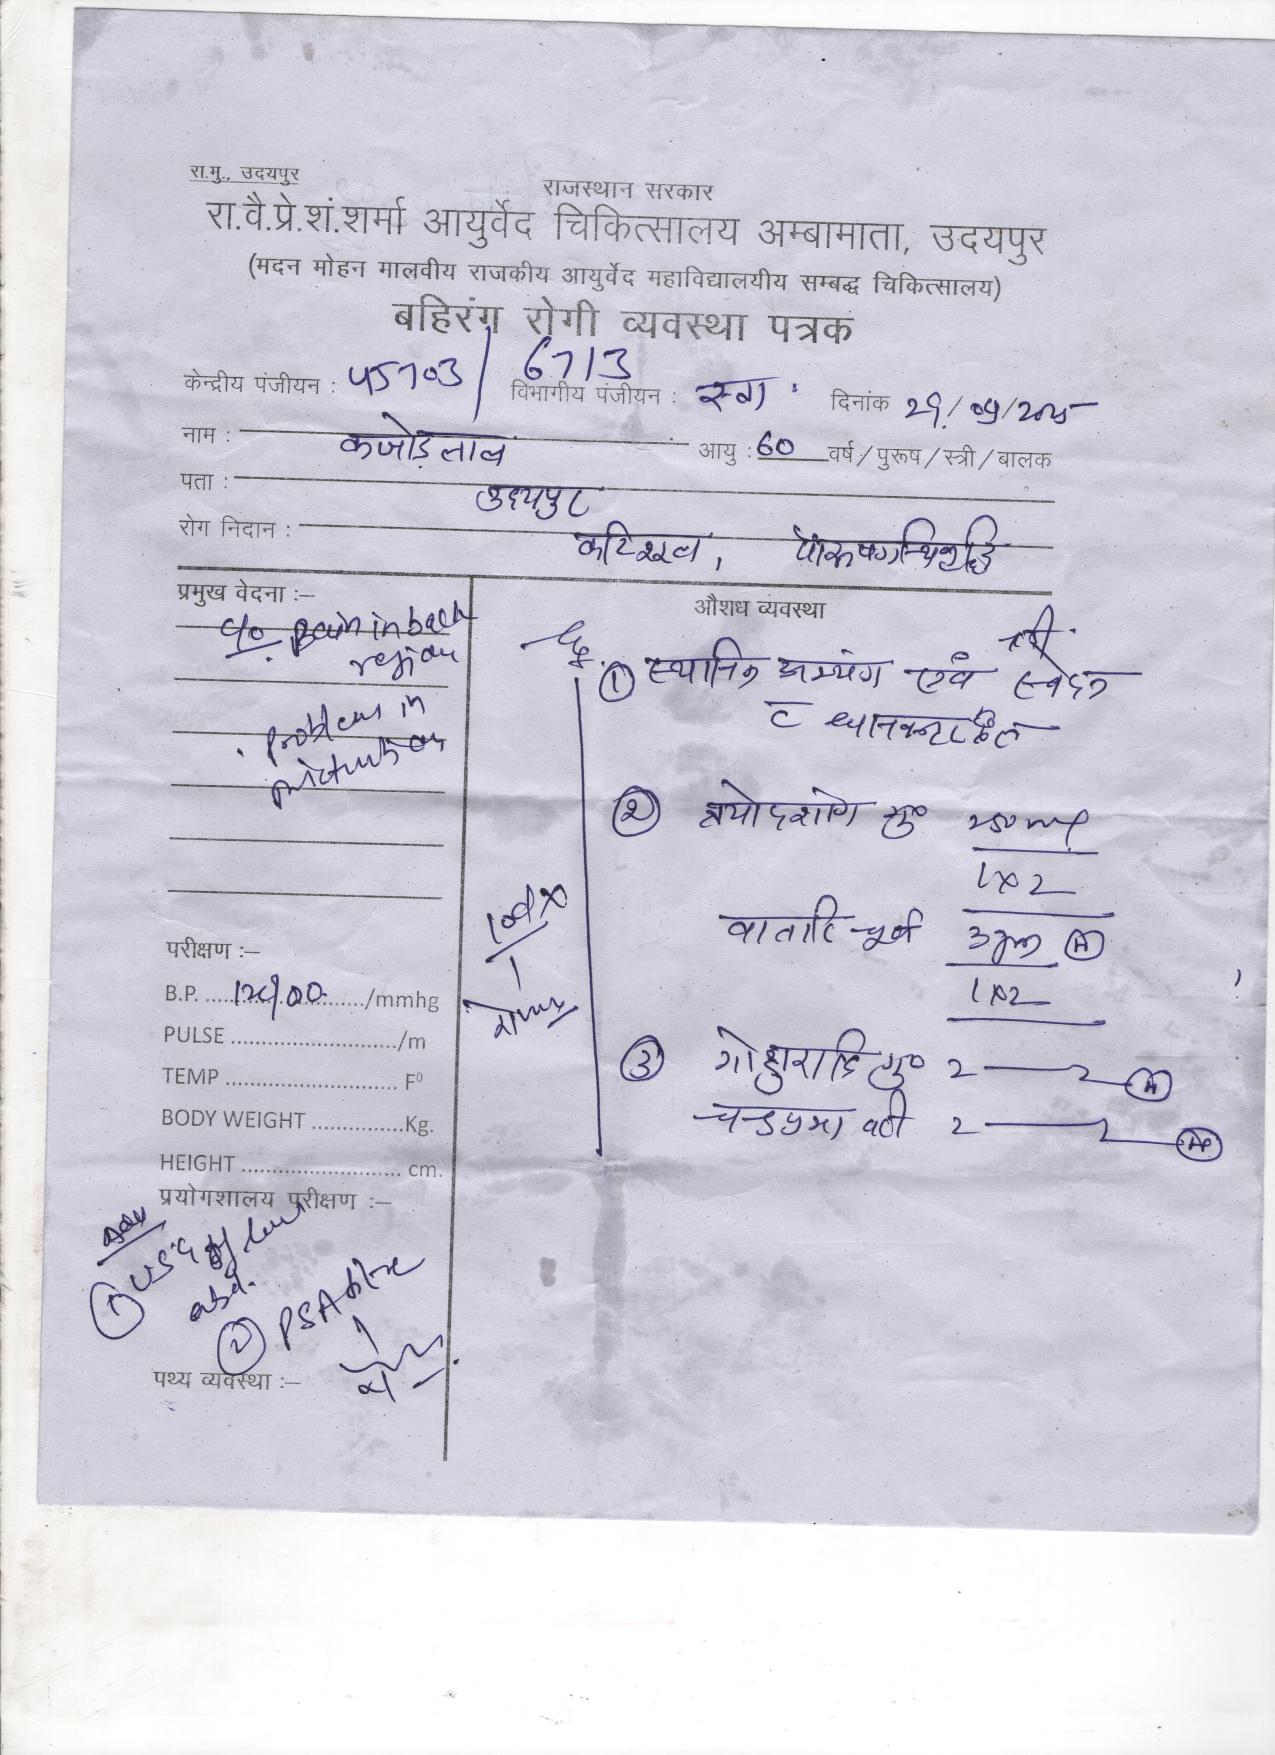 रा.मु., उदयपुर
राजस्थान सरकार
रा.वै.प्रे.शं.शर्मा आयुर्वेद चिकित्सालय अम्बामाता, उदयपुर
(मदन मोहन मालवीय राजकीय आयुर्वेद महाविद्यालयीय सम्बद्ध चिकित्सालय)
बहिरंग रोगी व्यवस्था पत्रक
केन्द्रीय पंजीयन : 45703 / 6713 विभागीय पंजीयन : दिनांक
नाम : कजोड़ लाल आयु : 60 वर्ष/पुरूष/स्त्री/बालक
पता : उदयपुर
रोग निदान : कटिशूल, पौरूषग्रन्थिवृद्धि
प्रमुख वेदना :–
c/o. Pain in back
region
. problem in
micturition
औशध व्यवस्था
① स्थानिक अभ्यंग एवं स्वेदन
② त्रयोदशांग गु० 250 mg
1x2
वातारि चूर्ण 3gm
1x2
③ गोक्षुरादि गु० 2 — 2
चन्द्रप्रभा वटी 2 — 2
परीक्षण :–
B.P. /mmhg
PULSE /m
TEMP F⁰
BODY WEIGHT Kg.
HEIGHT cm.
प्रयोगशालय परीक्षण :–
Adv
① USG of
abd.
② PSA
पथ्य व्यवस्था :–